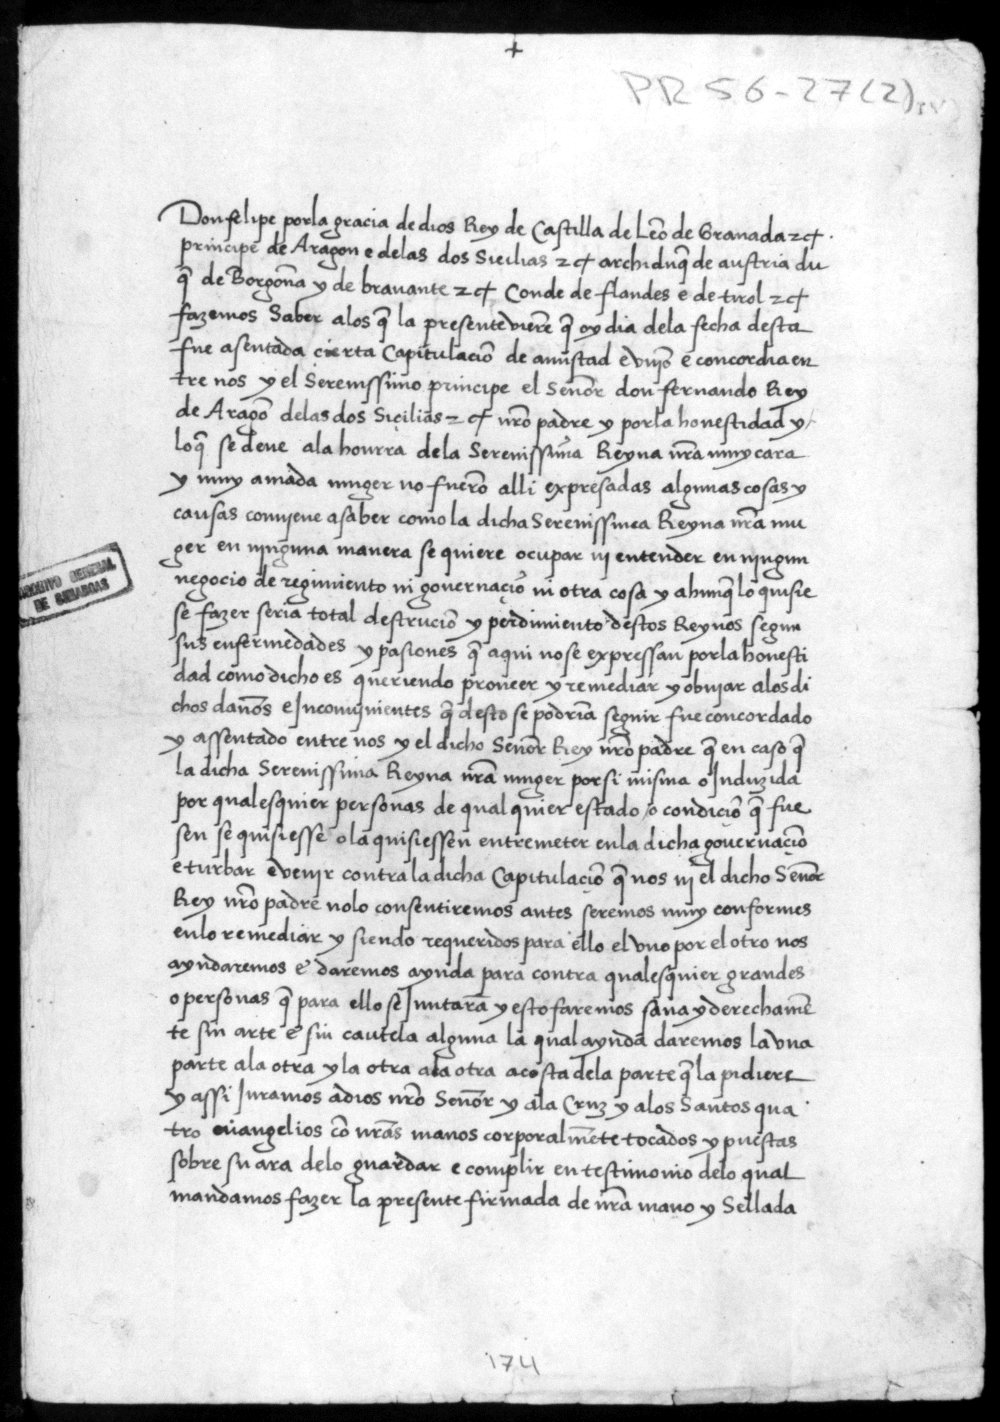 +
PR 56-27(2)
Don felipe por la gracia de dios Rey de Castilla de Leõ de Granada zcª.
principe de Aragon e delas dos Sicilias zcª archiduq̃ de austria du
q̃ de Borgoña y de bravante zcª Conde de flandes e de tirol zcª
fazemos Saber alos q̃ la presente vierẽ q̃ oy dia dela fecha desta
fue asentada çierta Capitulaciõ de amistad e vniõ e concordia en
tre nos y el Serenissimo principe el Señor don fernando Rey
de Aragõ delas dos Siçilias zcª nr̃o padre y por la honestidad y
lo q̃ se deve ala honrra dela Serenissima Reyna nr̃a muy cara
y muy amada muger no fuerõ alli expresadas algunas cosas y
causas conviene a saber como la dicha Serenissima Reyna nr̃a mu
ger en ninguna manera se quiere ocupar ni entender en ningun
negocio de regimiento ni governaçiõ ni otra cosa y ahunq̃ lo quisie
se fazer seria total destruciõ y perdimiento destos Reynos segun
sus enfermedades y pasiones q̃ aqui no se expressan por la honesti
dad como dicho es queriendo proveer y remediar y obviar alos di
chos daños e Inconvinientes q̃ desto se podria seguir fue concordado
y assentado entre nos y el dicho Señor Rey nr̃o padre q̃ en caso q̃
la dicha Serenissima Reyna nr̃a muger por si misma o Induzida
por qualesquier personas de qual quier estado o condiçiõ q̃ fue
sen se quisiesse o la quisiessen entremeter en la dicha governaçiõ
e turbar e venir contra la dicha Capitulaçiõ q̃ nos ni el dicho Señor
Rey nr̃o padre no lo consentiremos antes seremos muy conformes
en lo remediar y siendo requeridos para ello el vno por el otro nos
ayudaremos e daremos ayuda para contra qualesquier grandes
o personas q̃ para ello se Juntarã y esto faremos sana y derechamẽ
te sin arte e sin cautela alguna la qual ayuda daremos la vna
parte ala otra y la otra ala otra a costa dela parte q̃ la pidiere
y assi Juramos a dios nr̃o Señor y ala Cruz y alos Santos qua
tro evangelios cõ nr̃as manos corporalmẽte tocados y puestas
sobre su ara delo guardar e complir en testimonio delo qual
mandamos fazer la presente firmada de nr̃a mano y Sellada
ARCHIVO GENERAL
DE SIMANCAS
174